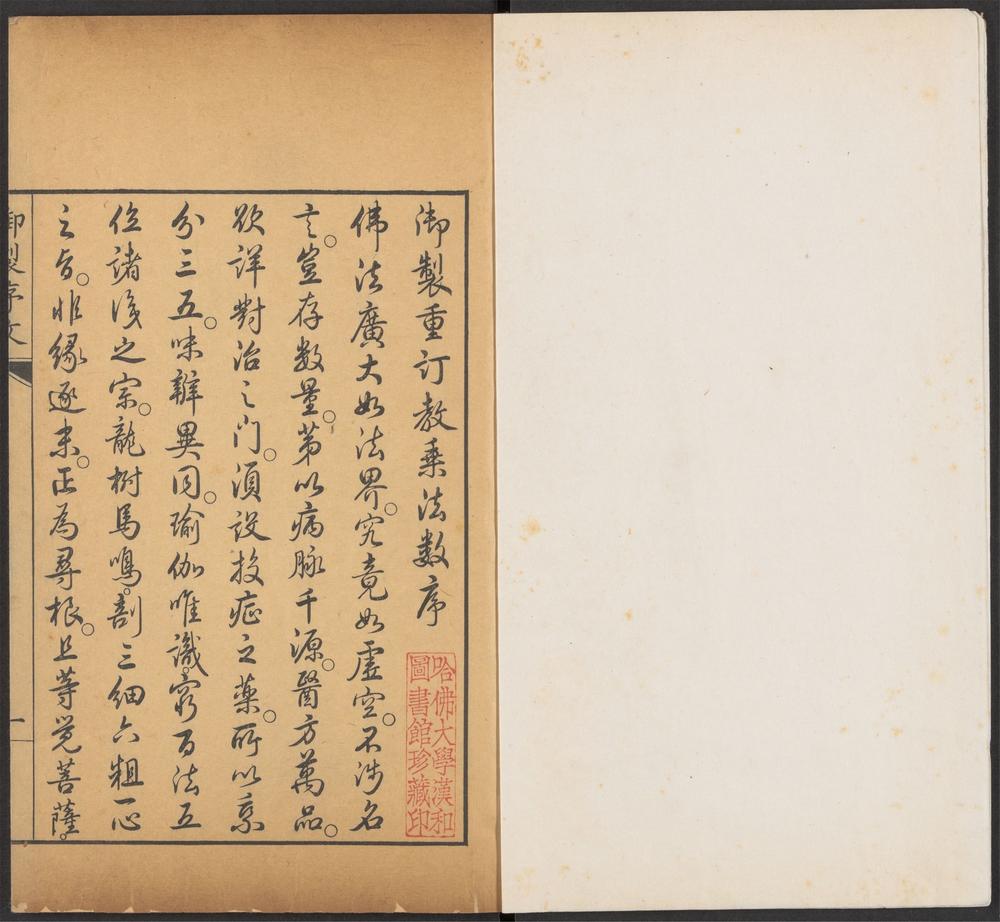 御製重訂教乘法數序
佛法廣大如法界。究竟如虛空。不涉名
言。豈存數量。第以病脉千源。醫方萬品。
欲詳對治之門。須設投症之藥。所以乘
分三五。味辨異同。瑜伽唯識。窮百法五
位諸渡之宗。龍樹馬鳴。剖三細六粗一心
之旨。非緣逐末。正為尋根。且等覺菩薩。
御製序文
一
哈佛大學漢和
圖書館珍藏印